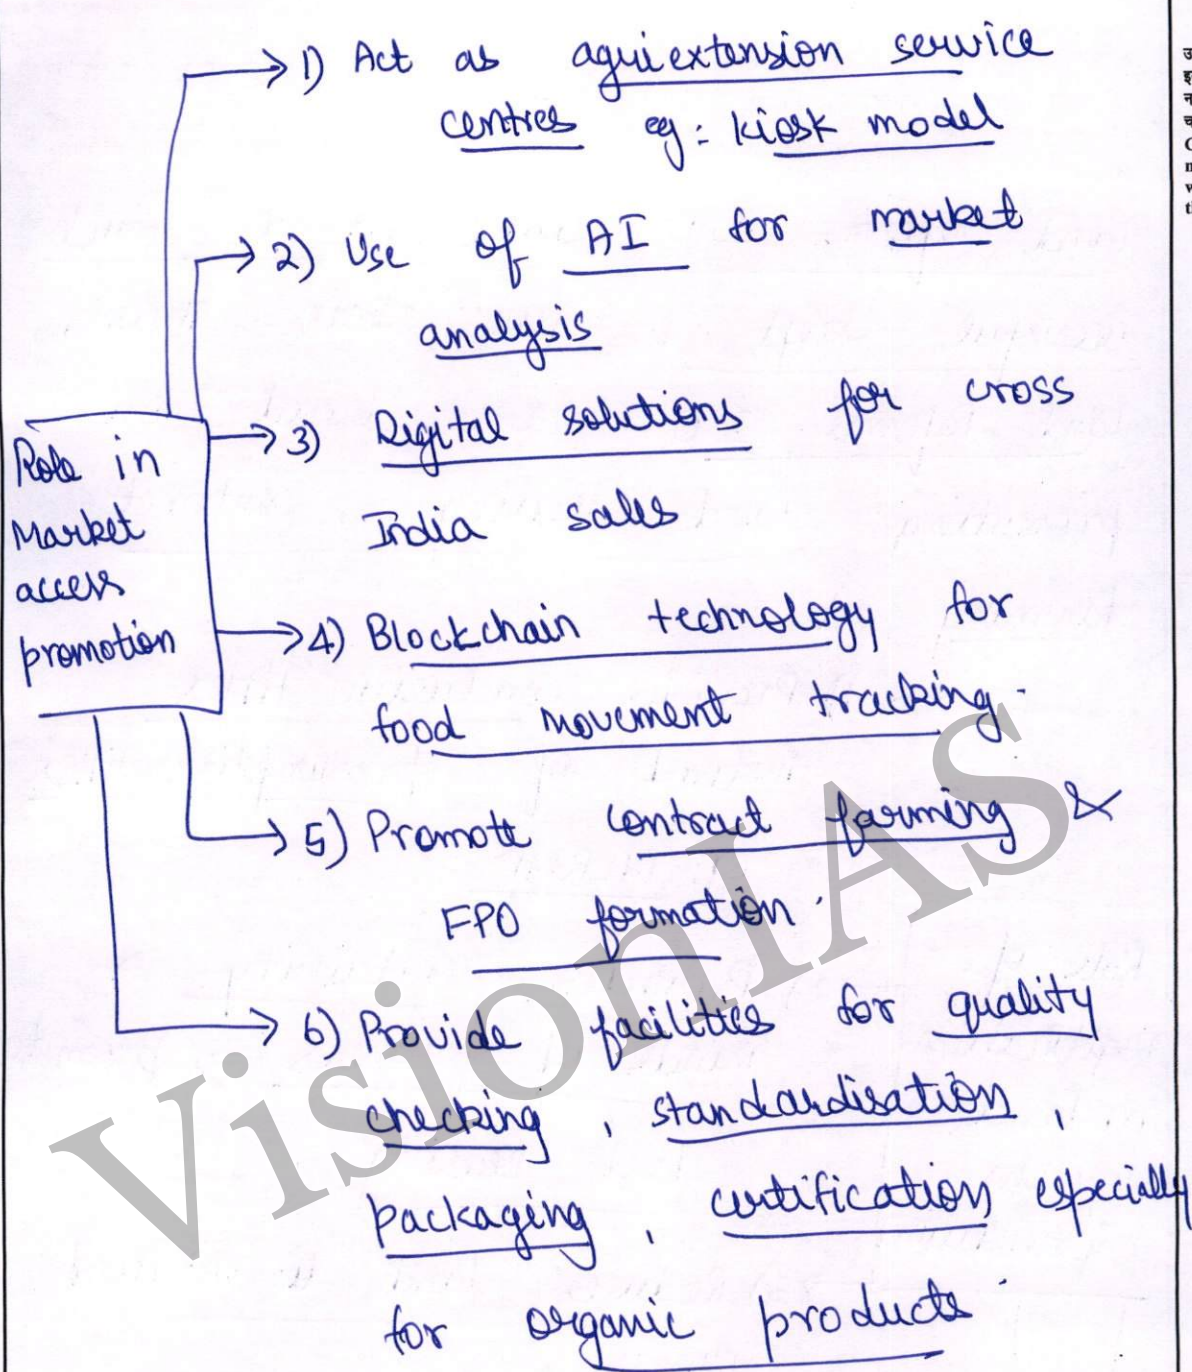 1) Act as agriextension service
centres eg: kiosk model
2) Use of AI for market
analysis
3) Digital solutions for cross
India sales
Role in
Market
access
promotion
4) Blockchain technology for
food movement tracking.
5) Promote contract farming &
FPO formation.
6) Provide facilities for quality
checking, standardisation,
packaging, certification especially
for organic products
VisionIAS